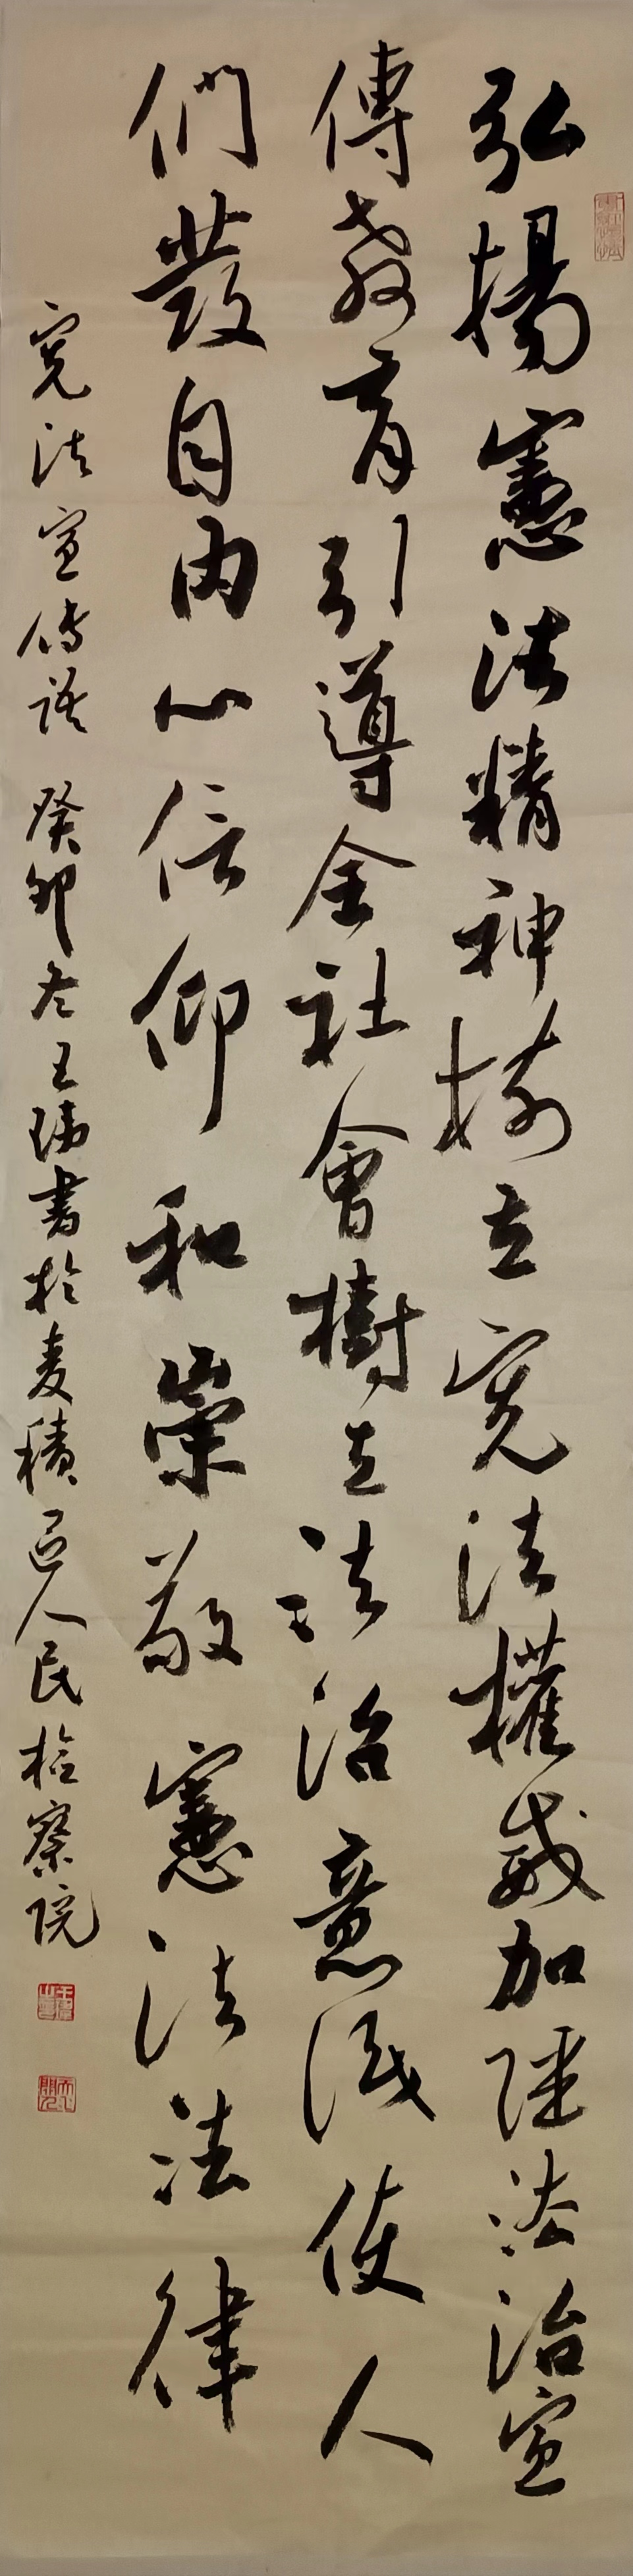 弘揚憲法精神樹立宪法權威加强法治宣
傳教育引導全社會樹立法治意识使人
們發自內心信仰和崇敬憲法法律
宪法宣传语 癸卯冬王瑀書於麦積区人民检察院